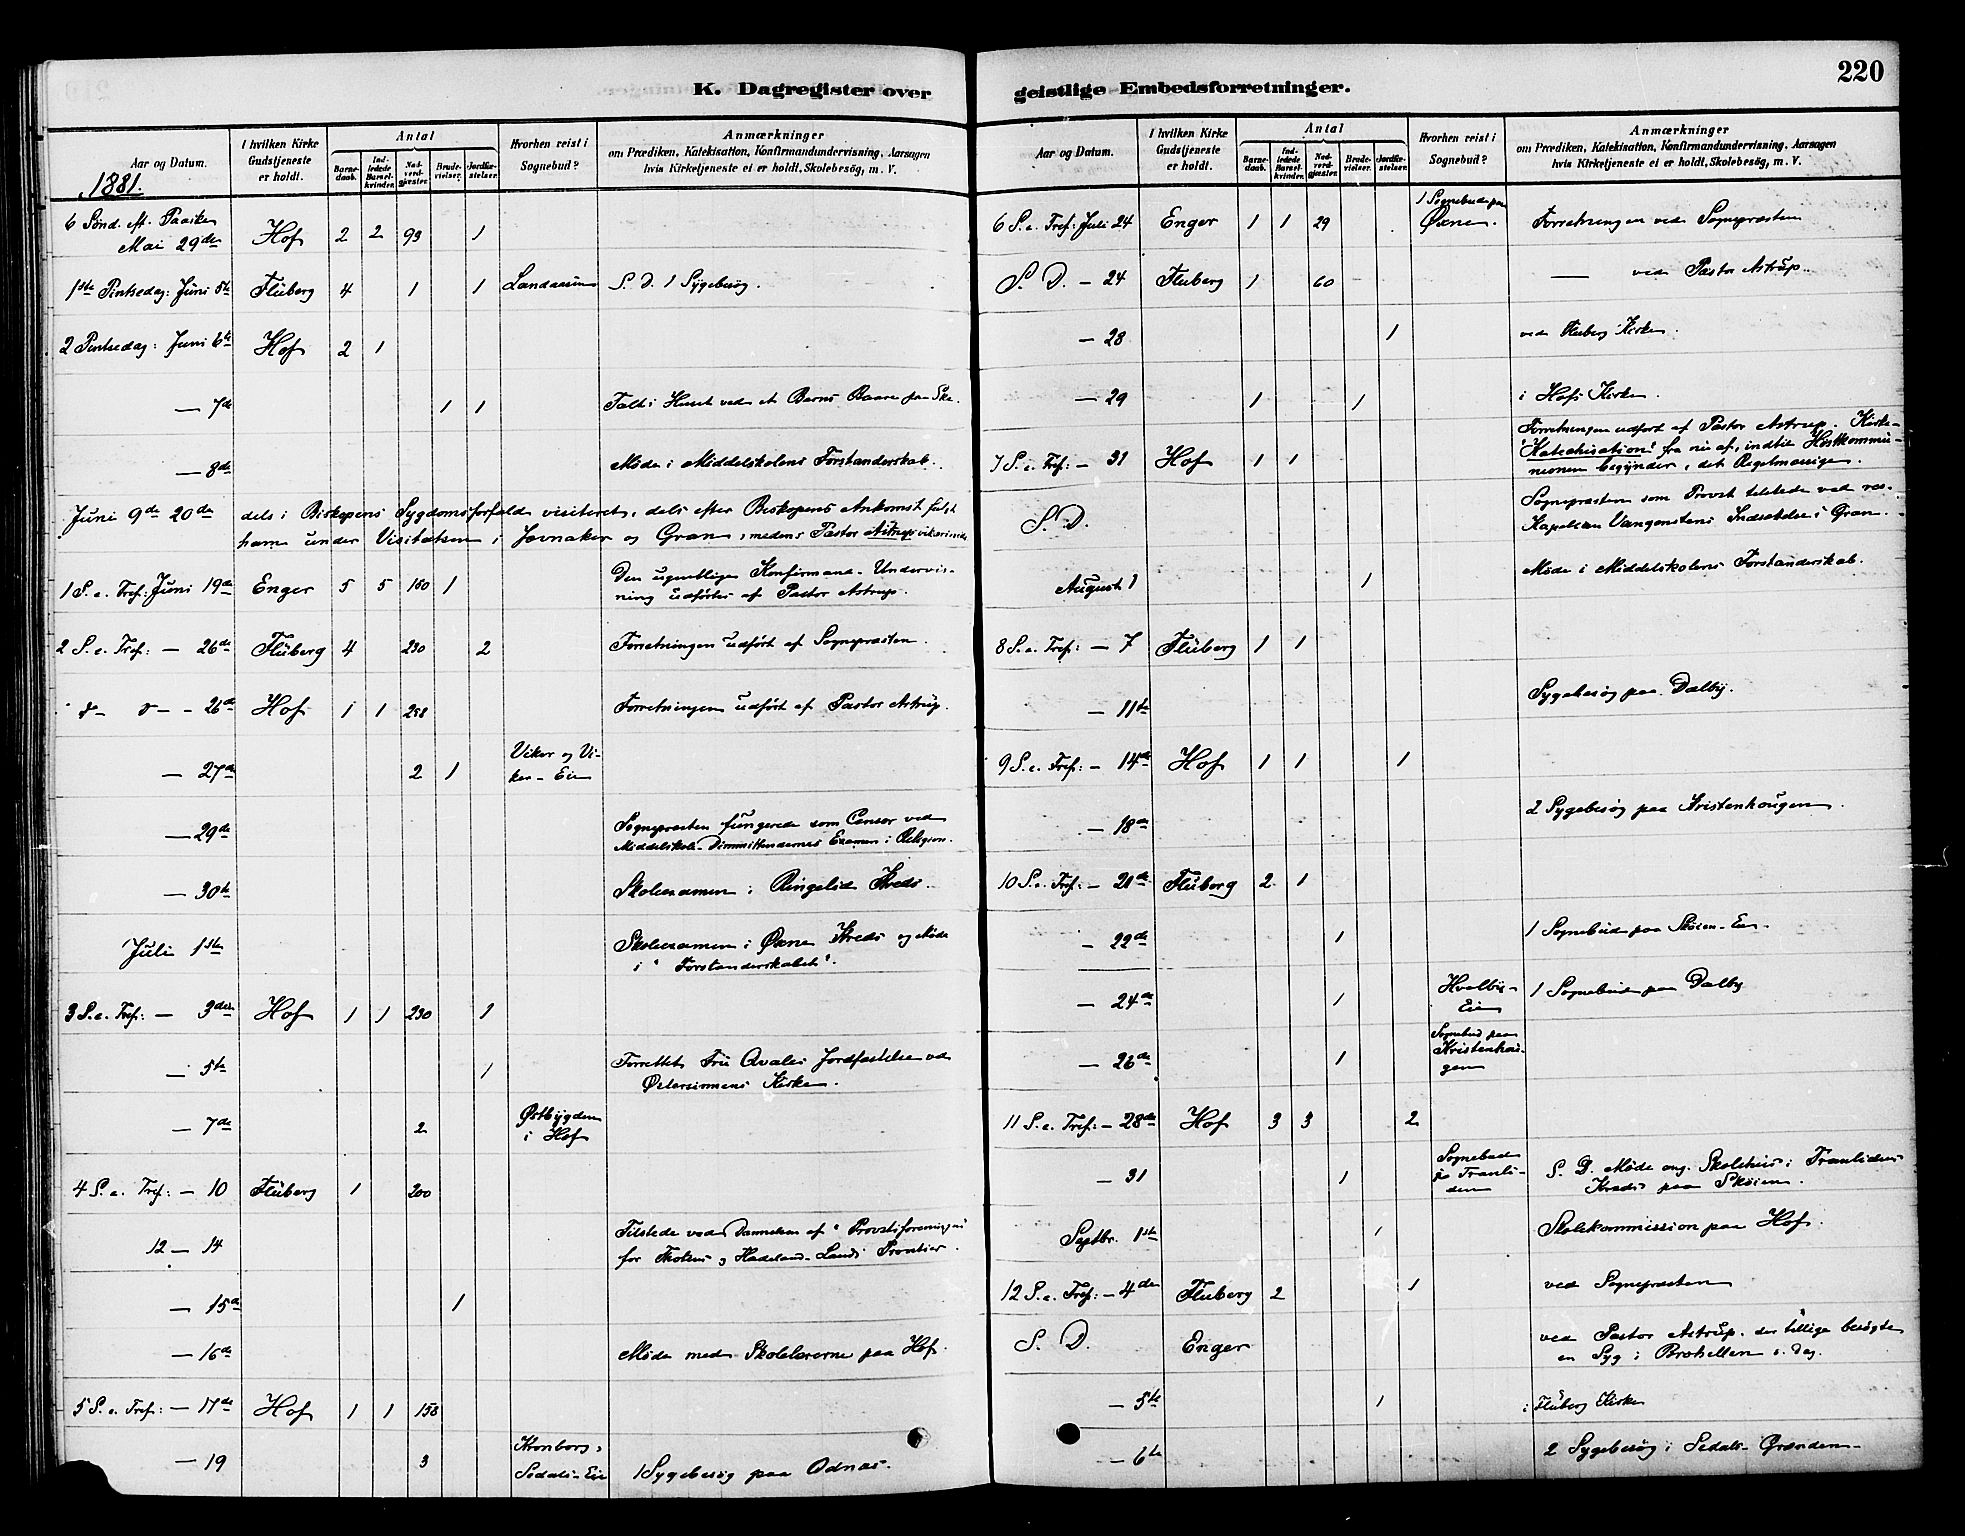 K. Dagregister over
Aar og Datum.
1881.
I hvilken Kirke
Gudstjeneste
er holdt.
Antal
Barne-
daab.
Ind-
ledede
Barsel-
kvinder.
Nad-
verd-
gjæster.
Brude-
vielser.
Jordfæ-
stelser.
Hvorhen reist i
Sognebud?
Anmærkninger
om Prædiken, Katekisation, Konfirmandundervisning, Aarsagen
hvis Kirketjeneste ei er holdt, Skolebesög, m. V.
6 Sönd. eft. Paaske
Mai 29de Hof 2 2 93 1
1ste Pintsedag: Juni 5te Fluberg 4 1 1 Landaasen S. D. 1 Sygebesøg.
2 Pintsedag: Juni 6te Hof 2 1
— 7de 1 1 Talt i Huset ved et Barns Baare paa Ske.
— 8de Møde i Middelskolens Forstanderskab.
Juni 9de 20de dels i Biskopens Sygdomsforfald visiteret, dels efter Biskopens Ankomst fulgt
ham under Visitatsen i Jevnaker og Gran, medens Pastor Astrup vikarierede
1 S. e. Tref: Juni 19de Enger 5 5 160 1 Den ugentlige Konfirmand-Undervis-
ning udførtes af Pastor Astrup.
2 S. e. Tref: — 26de Fluberg 4 230 2 Forretningen udført af Sognepræsten.
d— d— - 26de Hof 1 1 258 Forretningen udført af Pastor Astrup.
— 27de 2 1 Viker og Vi-
ker-Eie
— 29de Sognepræsten fungerede som Censor ved
Middelskole-Dimmittendernes Examen i Religion.
— 30te Skoleexamen i Ringelid Kreds.
Juli 1ste Skoleexamen i Øxne Kreds og Møde
i "Forstanderskabet".
3 S. e. Tref: — 3die Hof 1 1 230 1
— 5te 1 Forrettet Fru Qvales Jordfæstelse ved
Østersinnens Kirke.
— 7de 2 Østbygden
i Hof
4 S. e. Tref: — 10 Fluberg 1 200
12 — 14 Tilstede ved Dannelsen af "Provstiforeninger"
for Thotens og Hadeland-Lands Provstier.
— 15de 1
— 16de Møde med Skolelærerne paa Hof.
5 S. e. Tref: — 17de Hof 1 1 158
— 19 3 Kronborg,
Sedals-Eie 1 Sygebesøg paa Odnæs.
geistlige Embedsforretninger.
220
Aar og Datum.
I hvilken Kirke
Gudstjeneste
er holdt.
Antal
Barne-
daab.
Ind-
ledede
Barsel-
kvinder.
Nad-
verd-
gjæster.
Brude-
vielser.
Jordfæ-
stelser.
Hvorhen reist i
Sognebud?
Anmærkninger
om Prædiken, Katekisation, Konfirmandundervisning, Aarsagen
hvis Kirketjeneste ei er holdt, Skolebesög, m. V.
6 S. e. Tref: Juli 24 Enger 1 1 29 1 Sognebud paa
Øxne. Forretningen ved Sognepræsten
S. D. — 24 Fluberg 1 60 — ved Pastor Astrup.
— 28 1 ved Fluberg Kirke.
— 29 1 1 i Hofs Kirke.
7 S. e. Tref: — 31 Hof 1 1 Forretningen udført af Pastor Astrup. Kirke-
"Katechisation" fra nu af, indtil Høstkommu-
nionen begynder, det Regelmæssige.
S. D. Sognepræsten som Provst tilstede ved res.
Kapellan Vangenstens Indsættelse i Gran.
August 1 1 Møde i Middelskolens Forstanderskab.
8 S. e. Tref: — 7 Fluberg 1 1
— 11te Sygebesøg paa Dalby.
9 S. e. Tref: — 14de Hof 1 1 1
— 18de 2 Sygebesøg paa Kristenhougen.
10 S. e. Tref: — 21de Fluberg 2 1
— 22de 1 1 Sognebud paa Skøien-Eie.
— 24de 1 Hvalby-
Eie 1 Sognebud paa Dalby
— 26de 1 Sognebud paa
Kristenhou-
gen
11 S. e. Tref: — 28de Hof 3 3 2
— 31 1 Sognebud
på Tranli-
den S. D. Møde ang. Skolehus i Tranlidens
Kreds paa Skøien.
Septbr. 1ste 1 Skolekommission paa Hof.
12 S. e. Tref: — 4de Fluberg 2 1 ved Sognepræsten
S. D. Enger ved Pastor Astrup, der tillige besøgte
en Syg i s. Dag.
— 5te 1 i Fluberg Kirke
— 6te 2 Sygebesøg i Sedals-Grænden